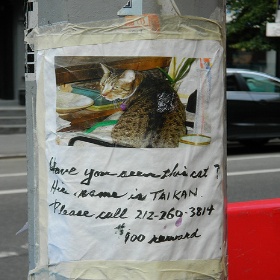 Have you seen this cat?
His name is TAIKAN.
Please call 212-260-3814
$100 reward